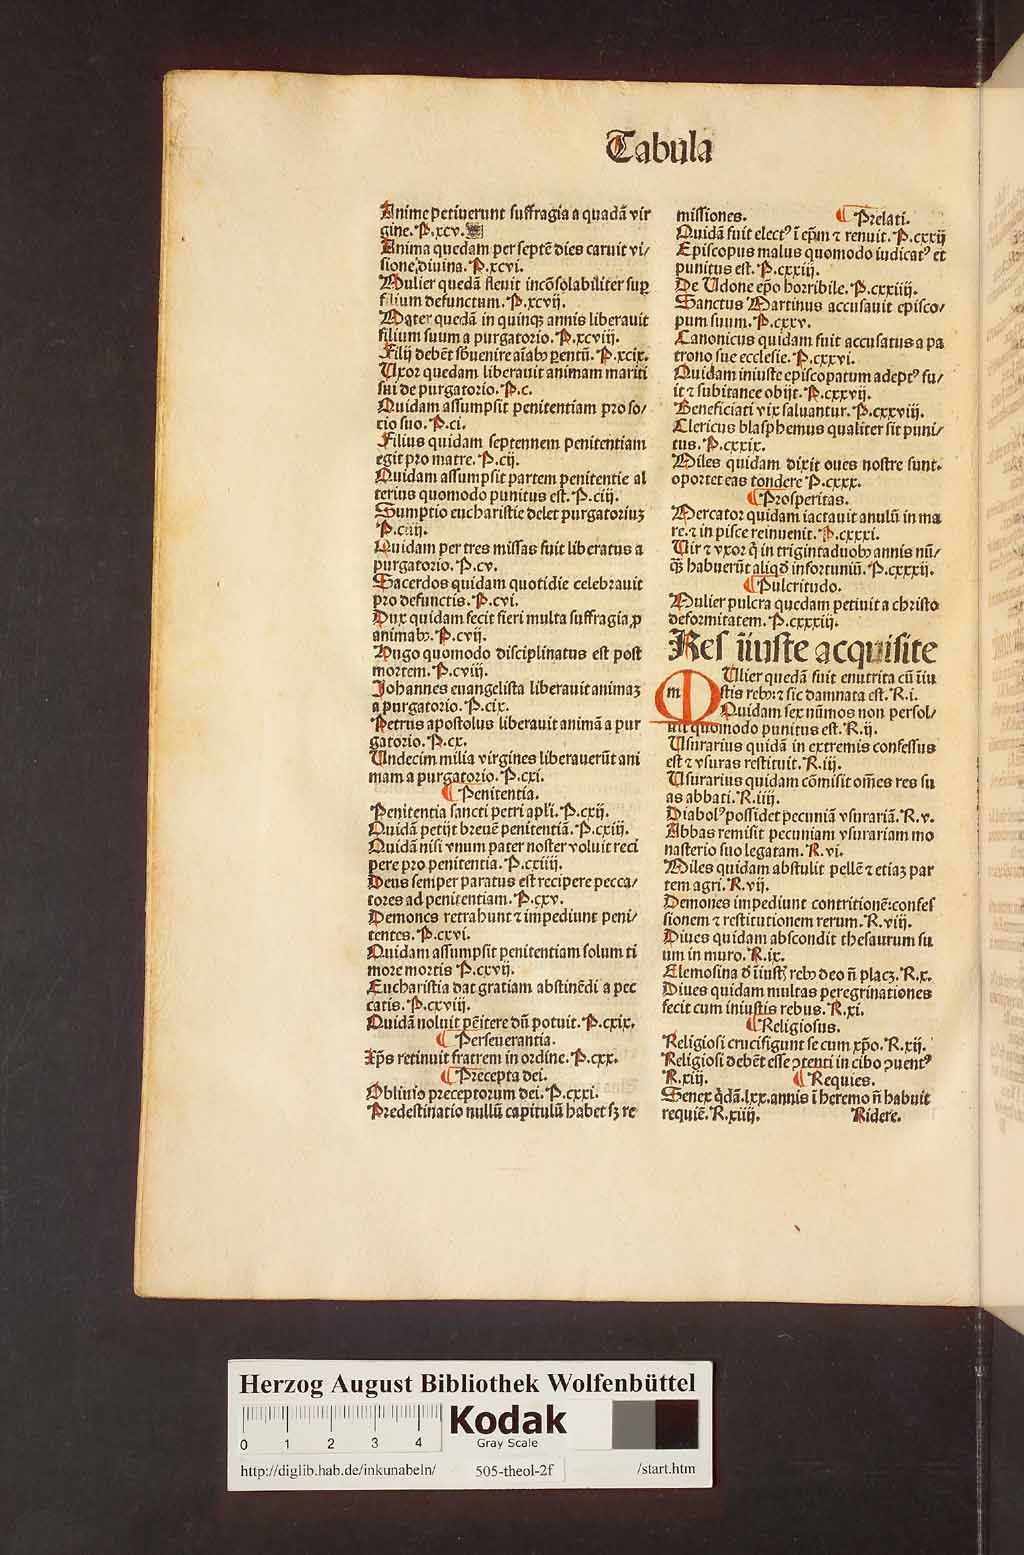 Tabula
Anime petiuerunt suffragia a quadã vir
gine. P.xcv.
Anima quedam per septẽ dies caruit vi/
sione diuina. P.xcvi.
Mulier quedã fleuit incõsolabiliter suꝑ
filium defunctum. P.xcvij.
Mater quedã in quinqꝫ annis liberauit
filium suum a purgatorio. P.xcviij.
Filij debẽt sb̾uenire aĩabꝰ ꝑentũ. P.xcix.
Uxor quedam liberauit animam mariti
sui de purgatorio. P.c.
Quidam assumpsit penitentiam pro so/
cio suo. P.ci.
Filius quidam septennem penitentiam
egit pro matre. P.cij.
Quidam assumpsit partem penitentie al
terius quomodo punitus est. P.ciij.
Sumptio eucharistie delet purgatoriuꝫ
P.ciiij.
Quidam per tres missas fuit liberatus a
purgatorio. P.cv.
Sacerdos quidam quotidie celebrauit
pro defunctis. P.cvi.
Dux quidam fecit fieri multa suffragia ꝓ
animabꝰ. P.cvij.
Hugo quomodo disciplinatus est post
mortem. P.cviij.
Johannes euangelista liberauit animaꝫ
a purgatorio. P.cix.
Petrus apostolus liberauit animã a pur
gatorio. P.cx.
Undecim milia virgines liberauerũt ani
mam a purgatorio. P.cxi.
¶ Penitentia.
Penitentia sancti petri apľi. P.cxij.
Quidã petijt breuẽ penitentiã. P.cxiij.
Quidã nisi vnum pater noster voluit reci
pere pro penitentia. P.cxiiij.
Deus semper paratus est recipere pecca/
tores ad penitentiam. P.cxv.
Demones retrahunt ⁊ impediunt peni/
tentes. P.cxvi.
Quidam assumpsit penitentiam solum ti
more mortis P.cxvij.
Eucharistia dat gratiam abstinẽdi a pec
catis. P.cxviij.
Quidã noluit pẽitere dũ potuit. P.cxix.
¶ Perseuerantia.
Xp̃s retinuit fratrem in ordine. P.cxx.
¶ Precepta dei.
Obliuio preceptorum dei. P.cxxi.
Predestinatio nullũ capitulũ habet sꝫ re
missiones. ¶ Prelati.
Quidã fuit electꝰ ĩ ep̃m ⁊ renuit. P.cxxij
Episcopus malus quomodo iudicatꝰ et
punitus est. P.cxxiij.
De Udone ep̃o horribile. P.cxxiiij.
Sanctus Martinus accusauit episco/
pum suum. P.cxxv.
Canonicus quidam fuit accusatus a pa
trono sue ecclesie. P.cxxvi.
Quidam iniuste episcopatum adeptꝰ fu/
it ⁊ subitanee obijt. P.cxxvij.
Beneficiati vix saluantur. P.cxxviij.
Clericus blasphemus qualiter sit puni/
tus. P.cxxix.
Miles quidam dixit oues nostre sunt.
oportet eas tondere P.cxxx.
¶ Prosperitas.
Mercator quidam iactauit anulũ in ma
re. ⁊ in pisce reinuenit. P.cxxxi.
Uir ⁊ vxor q̃ in trigintaduobꝰ annis nũ/
q̃ꝫ habuerũt aliqd̾ infortuniũ. P.cxxxij.
¶ Pulcritudo.
Mulier pulcra quedam petiuit a christo
deformitatem. P.cxxxiij.
Res ĩiuste acquisite
m
Ulier quedã fuit enutrita cũ ĩiu
stis rebꝰ: ⁊ sic damnata est. R.i.
Quidam sex nũmos non persol/
uit quomodo punitus est. R.ij.
Usurarius quidã in extremis confessus
est ⁊ vsuras restituit. R.iij.
Usurarius quidam cõmisit om̃es res su
as abbati. R.iiij.
Diabolꝰ possidet pecuniã vsurariã. R.v.
Abbas remisit pecuniam vsurariam mo
nasterio suo legatam. R.vi.
Miles quidam abstulit pellẽ ⁊ etiaꝫ par
tem agri. R.vij.
Demones impediunt contritionẽ: confes
sionem ⁊ restitutionem rerum. R.viij.
Diues quidam abscondit thesaurum su
um in muro. R.ix.
Elemosina d̾ ĩiustꝭ rebꝰ deo ñ placꝫ. R.x.
Diues quidam multas peregrinationes
fecit cum iniustis rebus. R.xi.
¶ Religiosus.
Religiosi crucifigunt se cum xp̃o. R.xij.
Religiosi debẽt esse ↄtenti in cibo ↄuentꝰ
R.xiij. ¶ Requies.
Senex q̾dã .lxx. annis ĩ heremo ñ habuit
requiẽ. R.xiiij. Ridere.
Herzog August Bibliothek Wolfenbüttel
0 1 2 3 4
Kodak
Gray Scale
http://diglib.hab.de/inkunabeln/ 505-theol-2f /start.htm